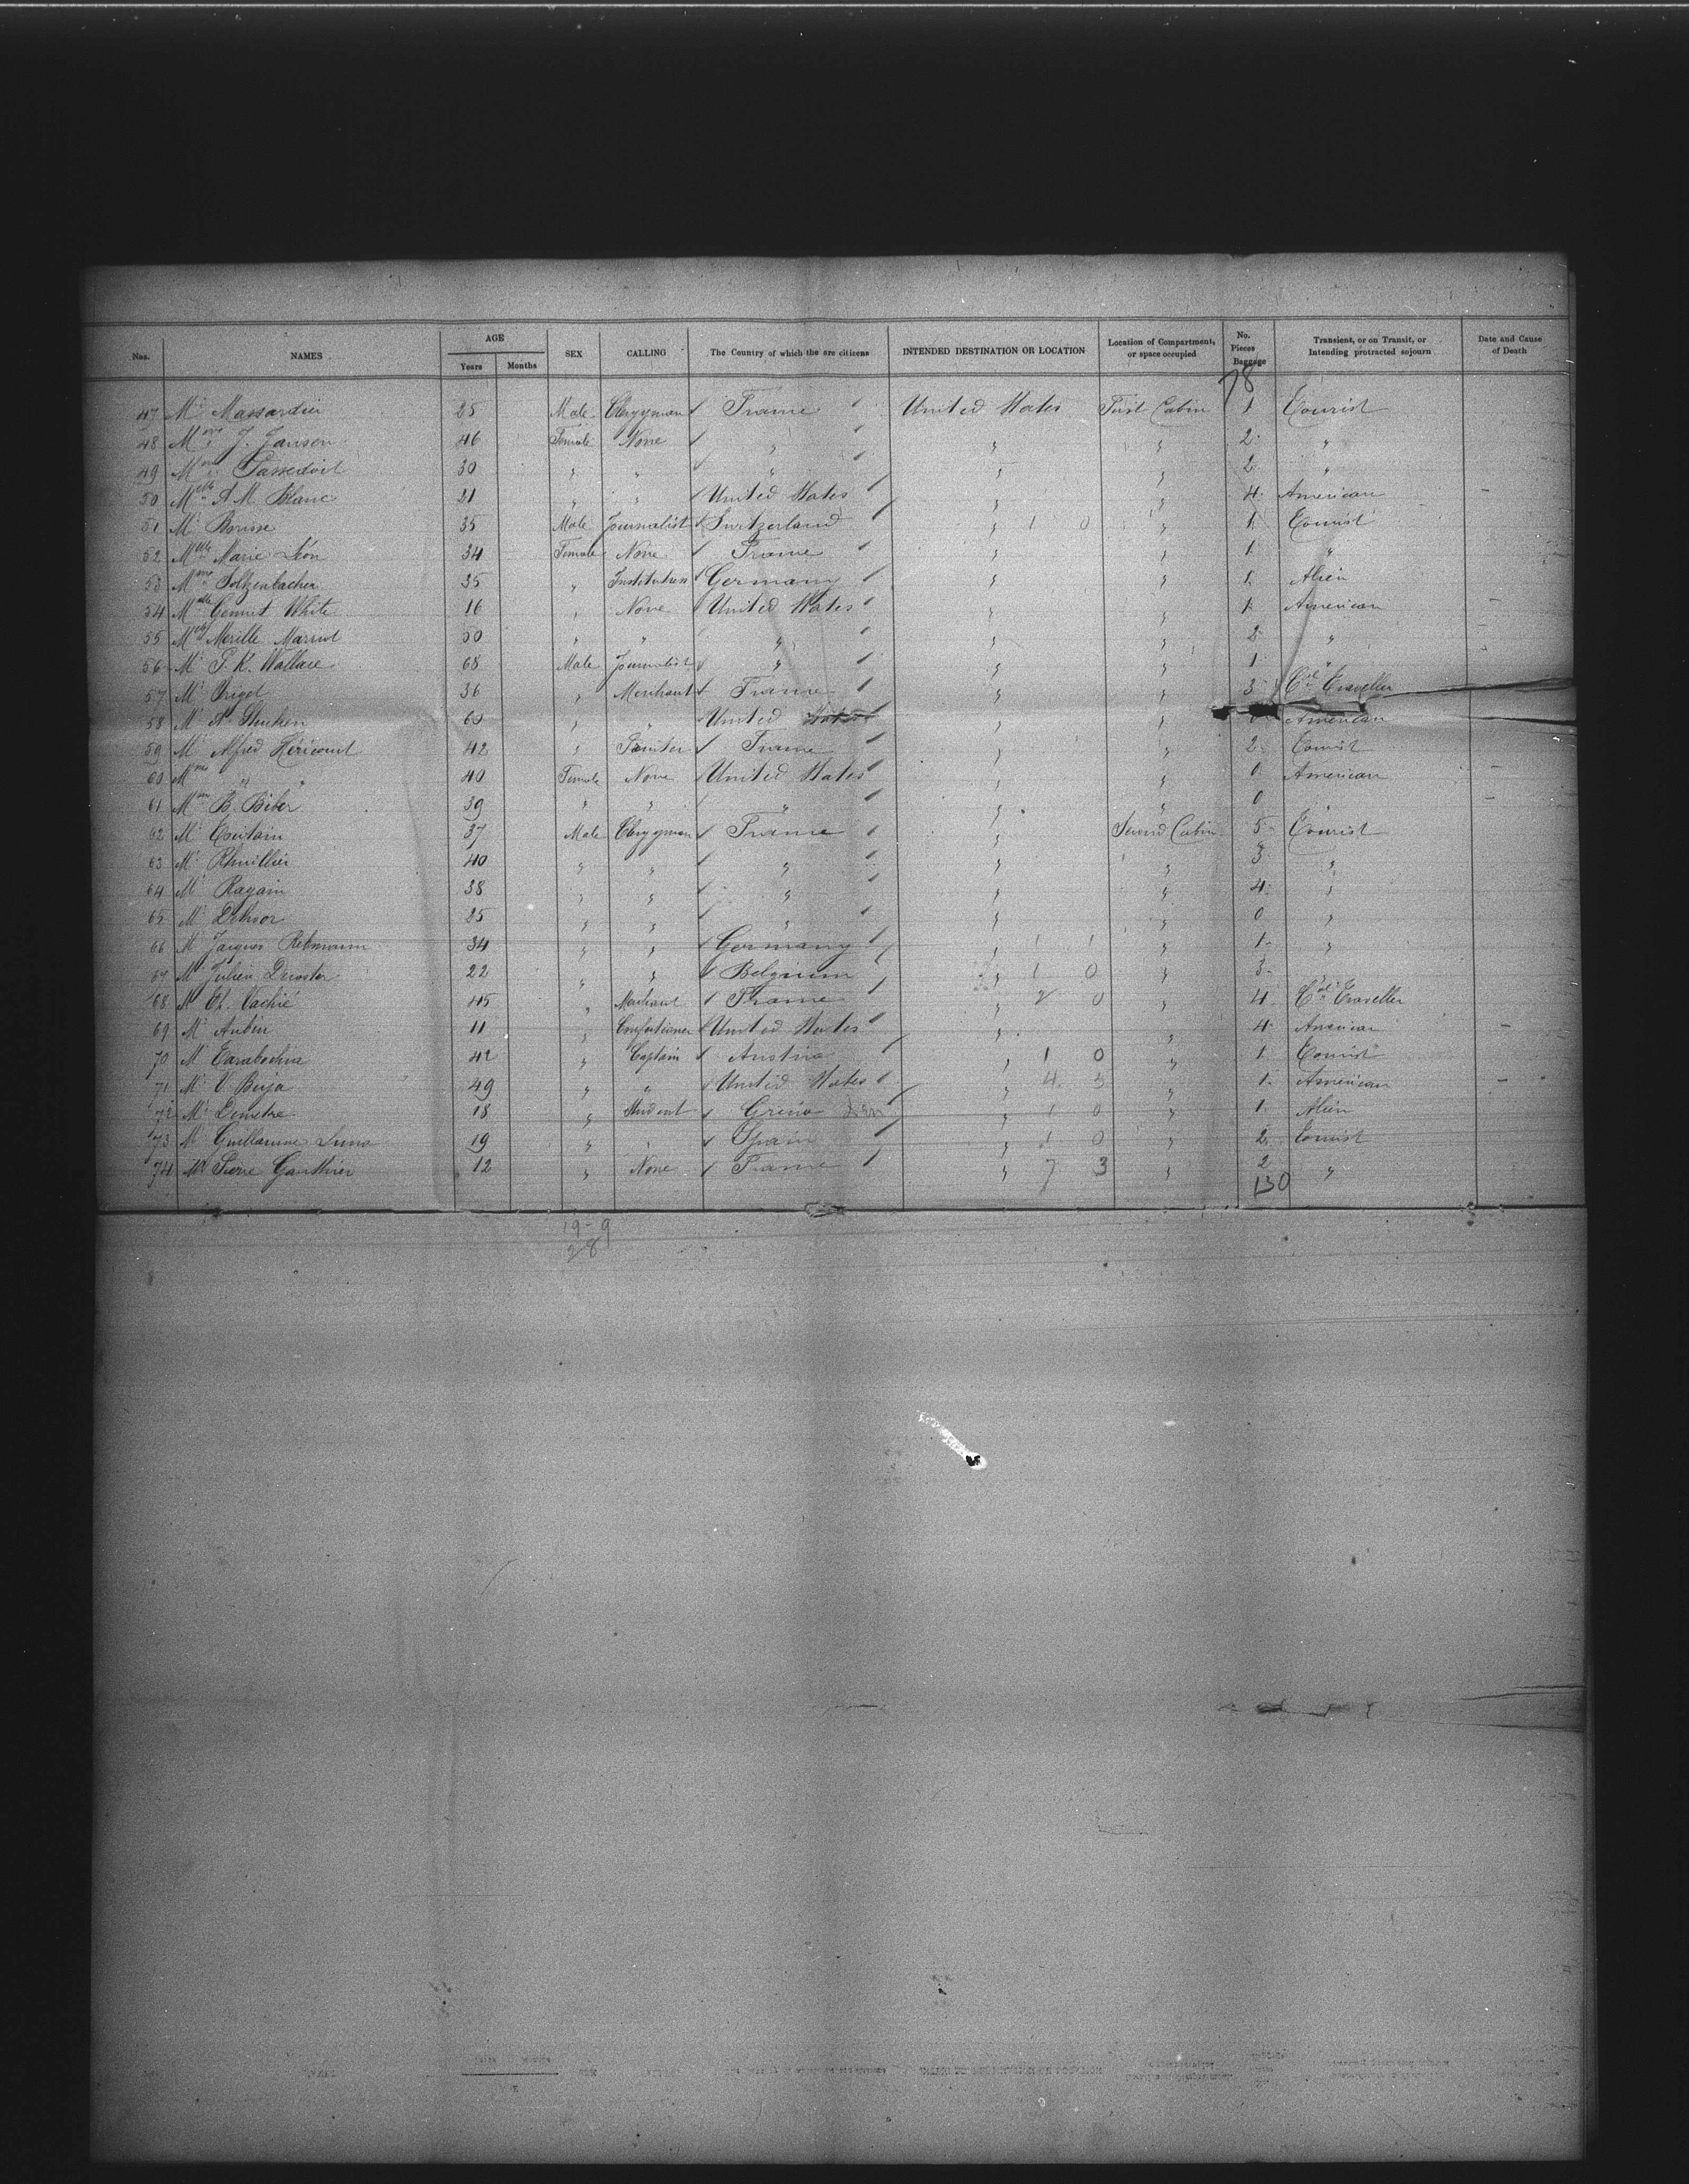 Nos. NAMES AGE Years Months SEX CALLING The Country of which the are citizens INTENDED DESTINATION OR LOCATION Location of Compartment, or space occupied No. Pieces Baggage Transient, or on Transit, or Intending protracted sojourn Date and Cause of Death
78
47 Mr Massardier 25 Male Clergyman France United States First Cabin 1 Tourist
48 Mme J. Jansen 46 Female None " " " 2 "
49 Mme 30 " " " " " 2 "
50 Melle A M Blanc 21 " " United States " " 4 American
51 Mr 35 Male Journalist Switzerland " 1 0 " 1 Tourist
52 Melle Marie Léon 34 Female None France " " 1 "
53 Mme Soltzenbacher 35 " Germany " " 1 Alien
54 Melle White 16 " None United States " " 1 American
55 50 " " " " " 2 "
56 Mr Wallace 68 Male Journalist " " " 1 "
57 Mr 36 " Merchant France " " 3 Cial Traveller
58 Mr A. 60 " " United States " " American
59 Mr Alfred Héricourt 42 " France " " 2 Tourist
60 Mme " " 40 Female None United States " " 0 American
61 Mme B. Biber 39 " " " " " 0 "
62 Mr 37 Male Clergyman France " Second Cabin 5 Tourist
63 Mr 40 " " " " " 3 "
64 Mr Ragain 38 " " " " " 4 "
65 Mr 25 " " " " " 0 "
66 Mr Jacques Rebmann 34 " " Germany " 1 1 " 1 "
67 Mr Julien 22 " " Belgium " 1 0 " 3
68 Mr Vachié 45 " Merchant France " 2 0 " 4 Cial Traveller
69 Mr Aubin 11 " Confectioner United States " " 4 American
70 Mr Tarabochia 42 " Captain Austria " 1 0 " 1 Tourist
71 Mr V. Beija 49 " " United States " 4 3 " 1 American
72 Mr Demetre 18 " Student " 1 0 " 1 Alien
73 Mr Guillaume Luna 19 " " Spain " 1 0 " 2 Tourist
74 Mr Pierre Gauthier 12 " None France " 7 3 " 2 "
130
19-9
28